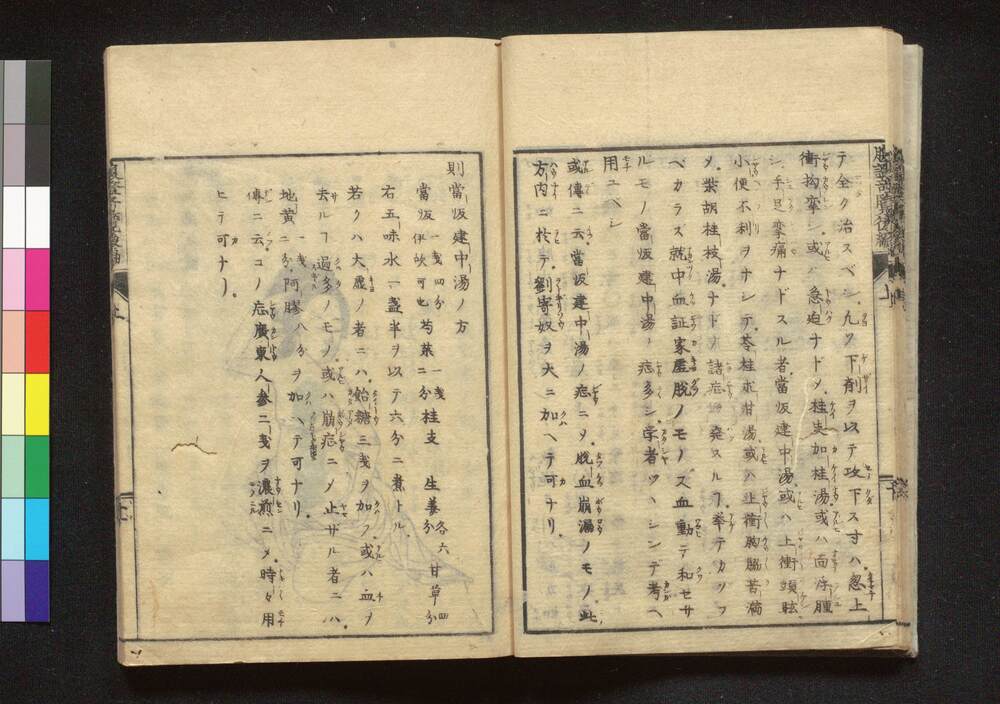 テ全ク治スベシ凡ソ下剤ヲ以テ攻下スヿハ忽上
衝拘挛シ或ハ急迫ナドメ桂枝加桂湯或ハ面浮腫
シ手足挛痛ナドスル者當皈建中湯或ハ上衝頭眩
小便不利ヲナシテ苓桂朮甘湯或ハ上衝胸脇苦満
メ柴胡桂枝湯ナドノ諸症発スルヿ挙テカゾフ
ベカラズ就中血証家虚脱ノモノハ血動テ和セサ
ルモノ當皈建中湯ノ症多シ学者ツヽシンデ考ヘ
用ユベシ
或傳ニ云當皈建中湯ノ症ニメ脱血崩漏ノモノハ此
方内ニ於テ劉寄奴ヲ大ニ加ヘテ可ナリ
則當皈建中湯ノ方
當皈一戔四分伊吹可也芍薬一戔二分桂支生姜各六分甘草四分
右五味水一盞半ヲ以テ六分ニ煮トル
若クハ大虚ノ者ニハ飴糖三戔ヲ加フ或ハ血ヲ
去ルヿ過多ノモノ或ハ崩症ニメ止ザル者ニハ
地黄一戔二分阿膠八分ヲ加ヘテ可ナリ
傳ニ云コノ症廣東人参二戔ヲ濃煎ニメ時々用
ヒテ可ナリ